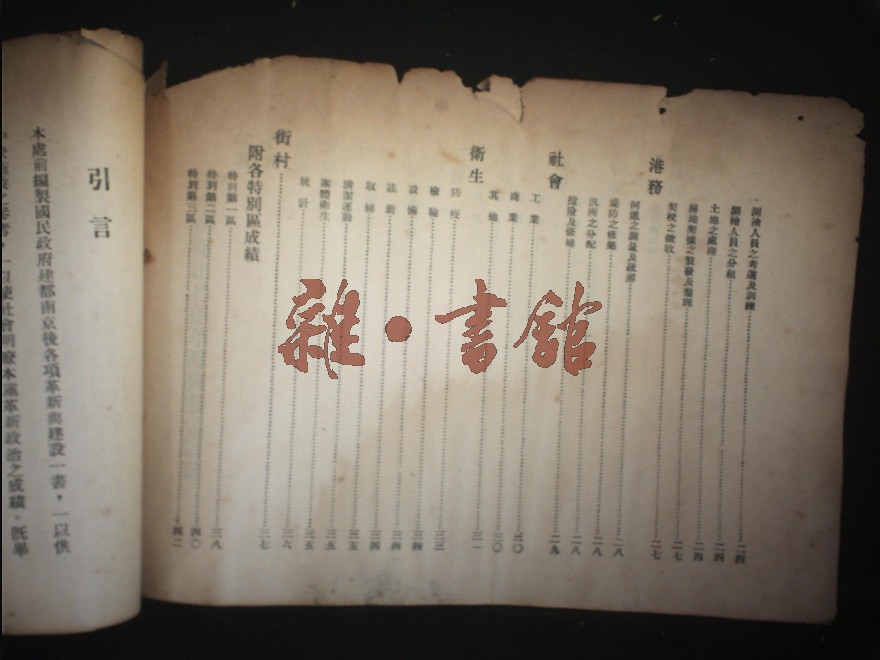 測繪人員之考選及訓練
測繪人員之分組 二四
土地之處理 二四
房地契據之製發及整理 二四
契稅之徵收 二七
港務 二七
河道之測量及疏濬 二八
堤防之修築 二八
泊所之分配 二八
搶險及修補
社會 二九
工業
商業 三〇
其他 三〇
衛生 三一
防疫
檢驗 三三
設備 三四
註册 三四
取締 三四
清潔運動 三五
團體衛生 三五
統計 三五
街村 三六
附各特別區成績 三七
特別第一區 三八
特別第二區 四〇
特別第三區 四二
引言
本處前編製國民政府建都南京後各項革新與建設一書，一以供
一以使社會明瞭本黨革新政治之成績。既畢
雜·書館